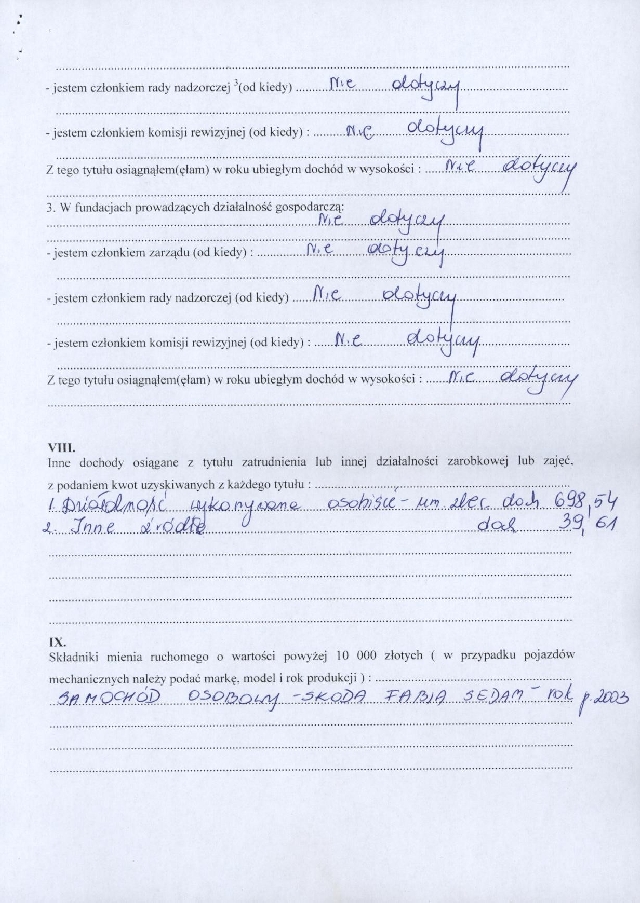 - jestem członkiem rady nadzorczej ³(od kiedy) ..... Nie dotyczy
- jestem członkiem komisji rewizyjnej (od kiedy) : ..... Nie dotyczy
Z tego tytułu osiągnąłem(ęłam) w roku ubiegłym dochód w wysokości : ..... Nie dotyczy
3. W fundacjach prowadzących działalność gospodarczą:
Nie dotyczy
- jestem członkiem zarządu (od kiedy) : ..... Nie dotyczy
- jestem członkiem rady nadzorczej (od kiedy) ..... Nie dotyczy
- jestem członkiem komisji rewizyjnej (od kiedy) : ..... Nie dotyczy
Z tego tytułu osiągnąłem(ęłam) w roku ubiegłym dochód w wysokości : ..... Nie dotyczy
VIII.
Inne dochody osiągane z tytułu zatrudnienia lub innej działalności zarobkowej lub zajęć,
z podaniem kwot uzyskiwanych z każdego tytułu : .....
1. Działalność wykonywana osobiście - um zlec. doch 698,54
2. Inne źródła doch 39,61
IX.
Składniki mienia ruchomego o wartości powyżej 10 000 złotych ( w przypadku pojazdów
mechanicznych należy podać markę, model i rok produkcji ) : .....
SAMOCHÓD OSOBOWY - SKODA FABIA SEDAM - rok p. 2003